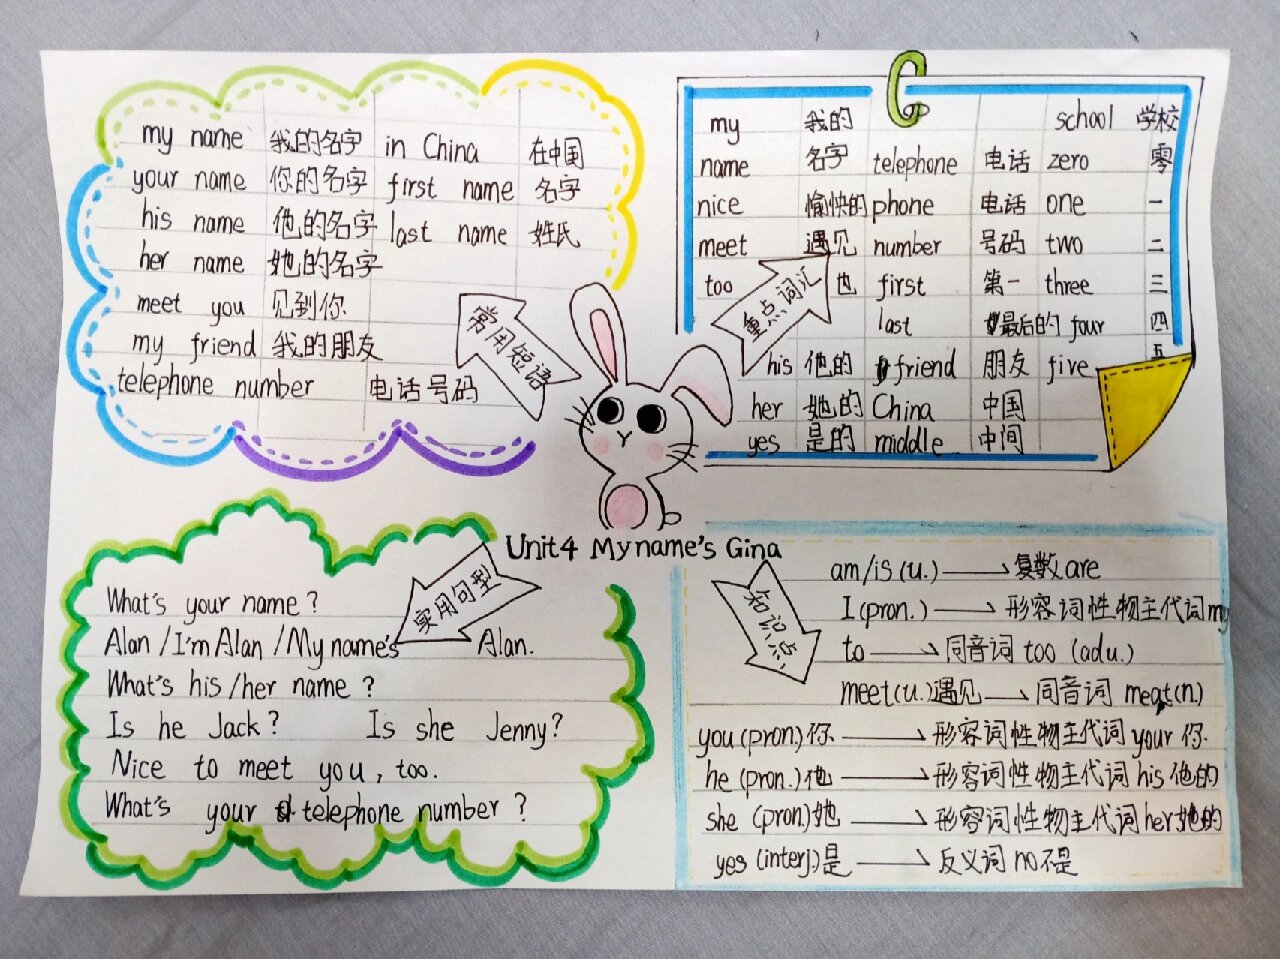 my name 我的名字 in China 在中国
your name 你的名字 first name 名字
his name 他的名字 last name 姓氏
her name 她的名字
meet you 见到你
my friend 我的朋友
telephone number 电话号码
常用短语
my 我的 school 学校
name 名字 telephone 电话 zero 零
nice 愉快的 phone 电话 one 一
meet 遇见 number 号码 two 二
too 也 first 第一 three 三
last 最后的 four 四
his 他的 friend 朋友 five 五
her 她的 China 中国
yes 是的 middle 中间
重点词汇
Unit4 My name's Gina
实用句型
What's your name?
Alan/I'm Alan/My name's Alan.
What's his/her name?
Is he Jack? Is she Jenny?
Nice to meet you, too.
What's your telephone number?
知识点
am/is (u.) → 复数 are
I (pron.) → 形容词性物主代词 my
to → 同音词 too (adu.)
meet (u.) 遇见 → 同音词 meat (n.)
you (pron.) 你 → 形容词性物主代词 your 你
he (pron.) 他 → 形容词性物主代词 his 他的
she (pron) 她 → 形容词性物主代词 her 她的
yes (interj.) 是 → 反义词 no 不是